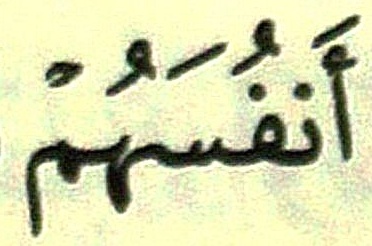 أَنفُسَهُمْ